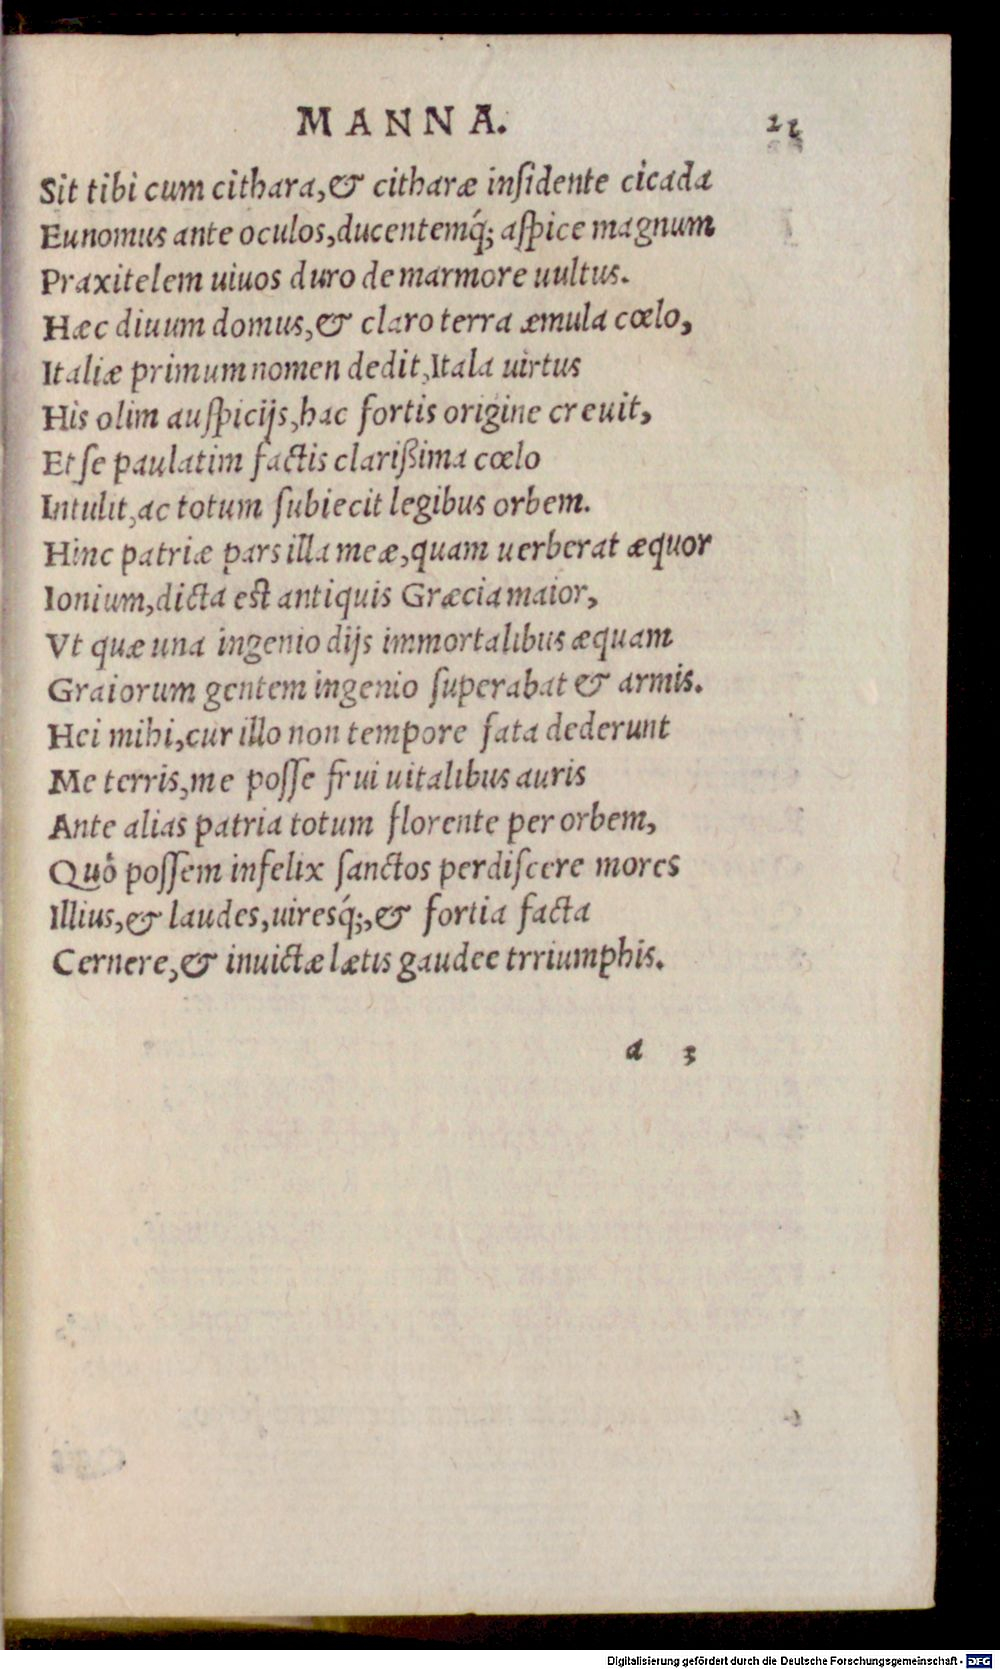 MANNA. 21
Sit tibi cum cithara, & citharæ inſidente cicada
Eunomus ante oculos, ducentemq́; aſpice magnum
Praxitelem uiuos duro de marmore uultus.
Hæc diuum domus, & claro terra æmula cœlo,
Italiæ primum nomen dedit, Itala uirtus
His olim auſpicijs, hac fortis origine creuit,
Et ſe paulatim factis clarißima cœlo
Intulit, ac totum ſubiecit legibus orbem.
Hinc patriæ pars illa meæ, quam uerberat æquor
Ionium, dicta est antiquis Græcia maior,
Vt quæ una ingenio dijs immortalibus æquam
Graiorum gentem ingenio ſuperabat & armis.
Hei mihi, cur illo non tempore fata dederunt
Me terris, me poſſe frui uitalibus auris
Ante alias patria totum florente per orbem,
Quô poſſem infelix ſanctos perdiſcere mores
Illius, & laudes, uiresq́;, & fortia facta
Cernere, & inuictæ lætis gaudee trriumphis.
a 3
Digitalisierung gefördert durch die Deutsche Forschungsgemeinschaft - DFG